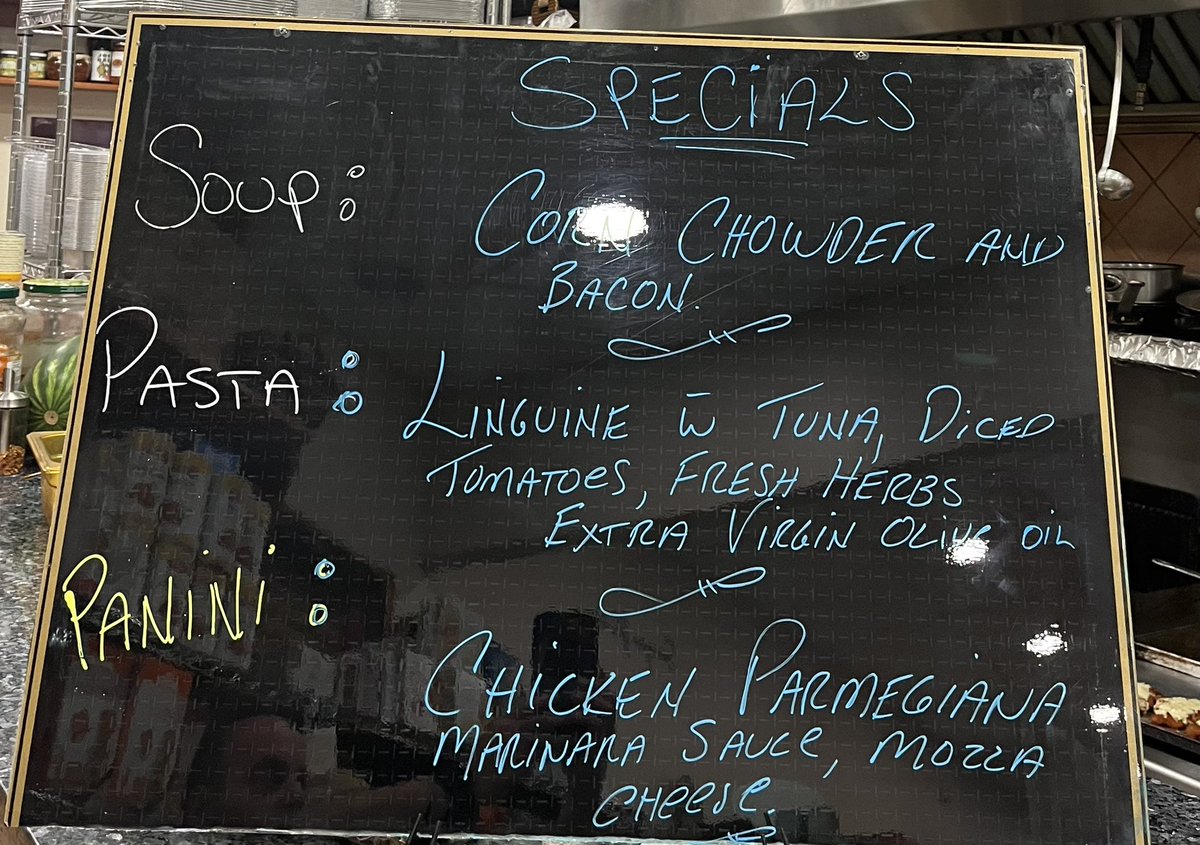 SPECiALS
SOUP:
CORN CHOWDER AND
BACON.
PASTA:
LiNGUINE w̄ TUNA, DiCED
TOMATOES, FRESH HERBS
EXTRA VIRGIN OLIVE OIL
PANiNi:
CHiCKEN PARMEGIANA
MARINARA SAUCe, MOZZA
CHeeSe.